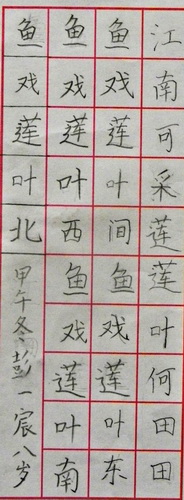 江南可采莲莲叶何田田
鱼戏莲叶间鱼戏莲叶东
鱼戏莲叶西鱼戏莲叶南
鱼戏莲叶北
甲午冬彭一宸八岁